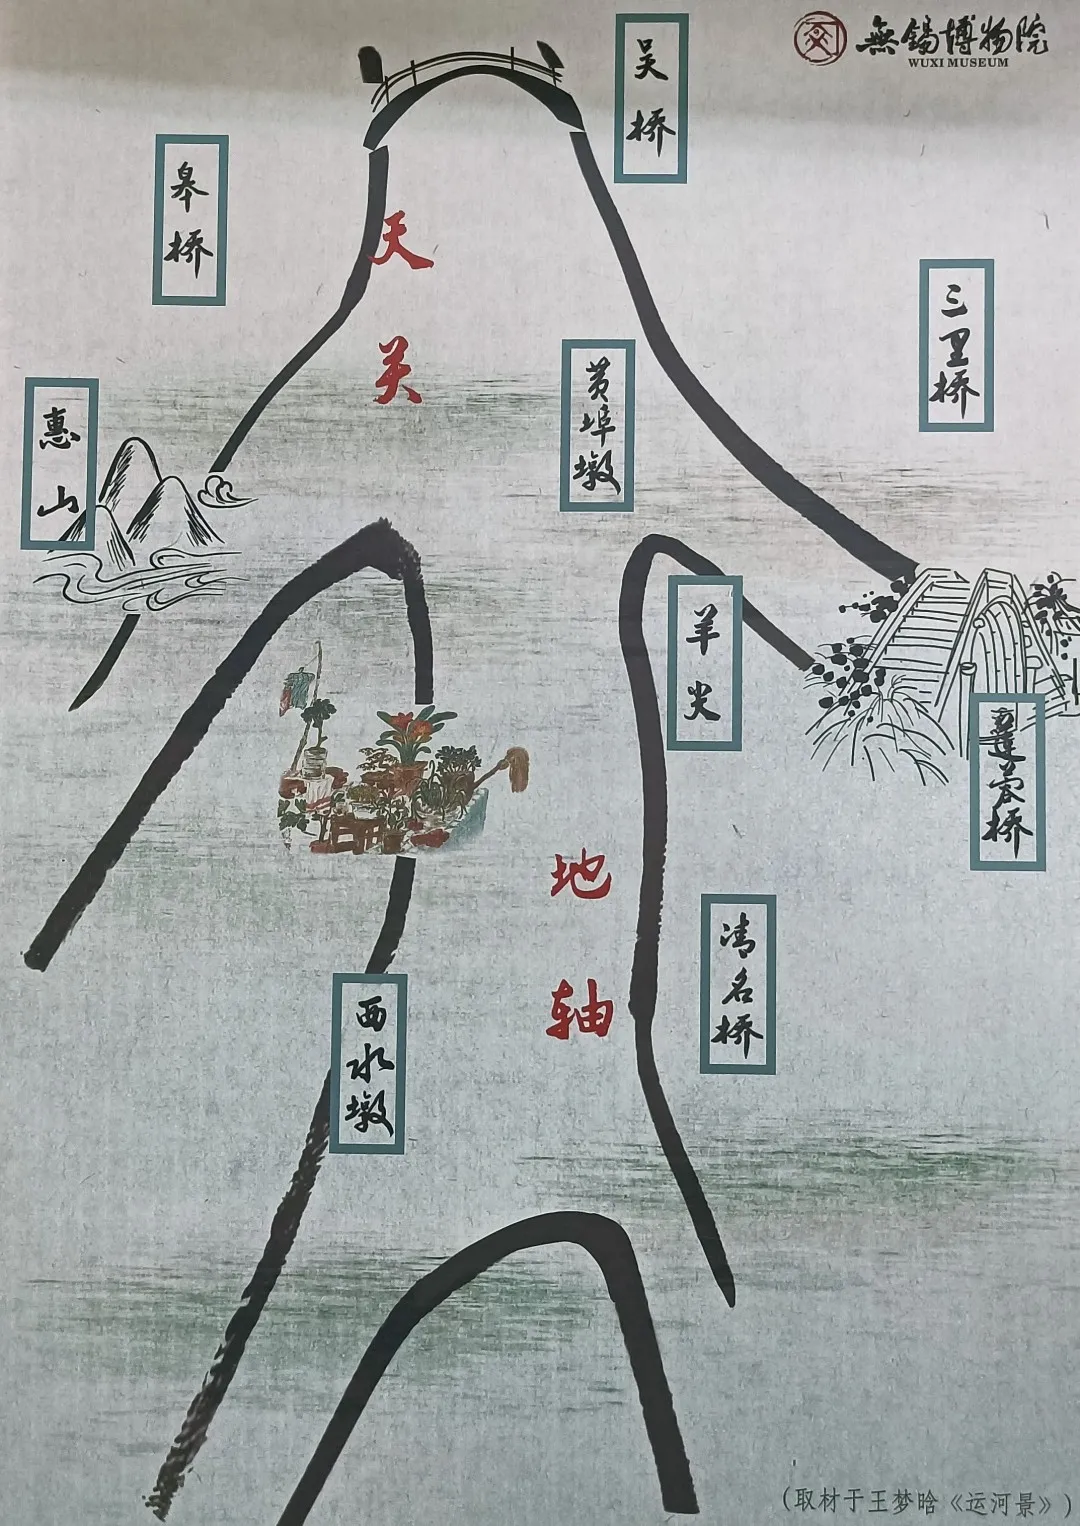 無錫博物院
WUXI MUSEUM
吴桥
皋桥
天关
三里桥
黄埠墩
惠山
羊尖
莲蓉桥
地轴
清名桥
西水墩
(取材于王梦晗《运河景》)